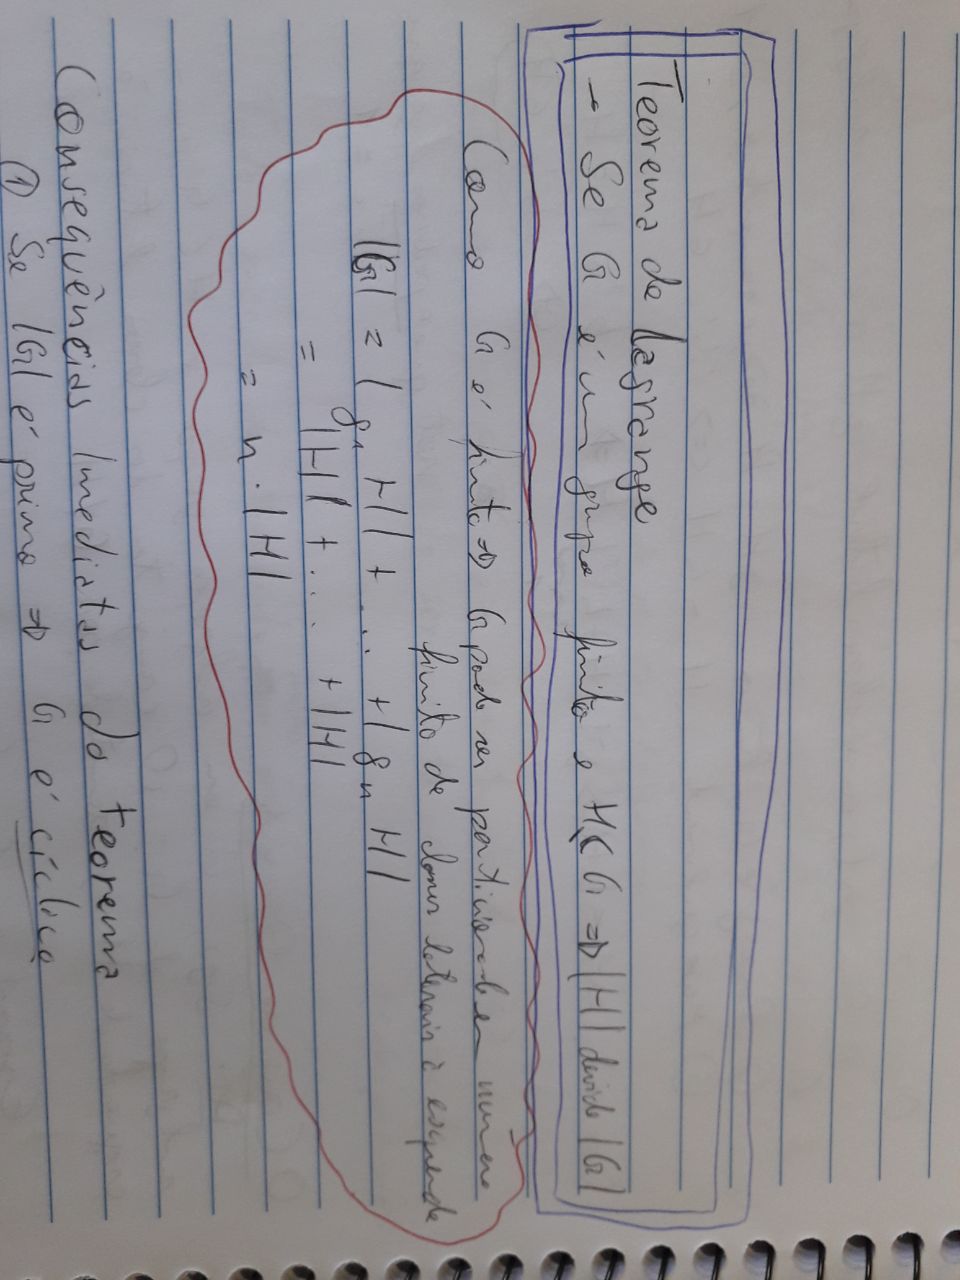 Teorema de Lagrange
→ Se G é um grupo finito e H < G ⇒ |H| divide |G|
Como G é finito ⇒ G pode ser particionado em número
finito de classes laterais à esquerda
|G| = |g₁ H| + ... + |gₙ H|
= |H| + ... + |H|
= n . |H|
Consequências Imediatas do teorema
① Se |G| é primo ⇒ G é cíclico